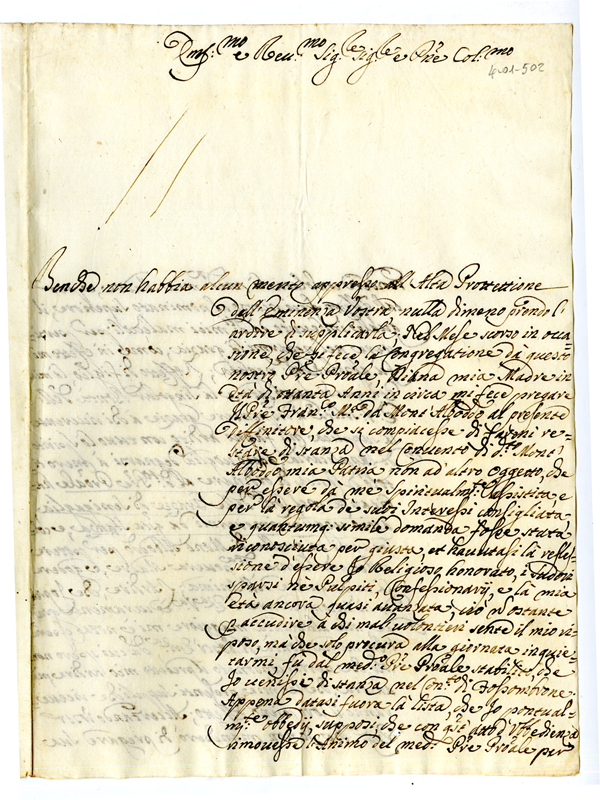 Em.mo e Reu.mo Sig.re Sig.re e Pñe Col.mo
4-01-502
Benche non habbia alcun merito appresso all'Alta Protettione
dell'Eminenza Vostra nulla dimeno prendo l'
ardire di supplicarla. Nel Mese scorso in occa=
sione, che si fece la Congregatione da questo
nostro Pre Pñale, Diana mia Madre in
età d'ottanta Anni in circa mi fece pregare
il Pre Fran.co M.a da Mont'Albodo al presente
Diffinitore, che si compiacesse di farmi re=
stare di stanza nel Convento di d.to Mont'
Albodo mia Patria non ad'altro oggetto, che
per essere da me spiritualm.te assistita e
per la regola de suoi Interessi consigliata
e quantunq. simile domanda fosse stata
riconosciuta per giusta, et hauutasi la refles=
sione d'essere Io Religioso honorato, i sudori
sparsi ne Pulpiti, Confessionarij, e la mia
età ancora quasi auanzata, ciò n'ostante
p accudire à chi mal uolontieri sente il mio ri=
poso, mà che solo procura alla giornata inquie=
tarmi, fu dal med.o Pre Pñale stabilito, che
Io uenisse di stanza nel Con.to di Fossombrone.
Appena datasi fuora la lista che Io pontual=
m.te obbedij, supposi che con q.to atto d'Vbbedienza
rimouesse l'Animo del med.o Pre Pñale per